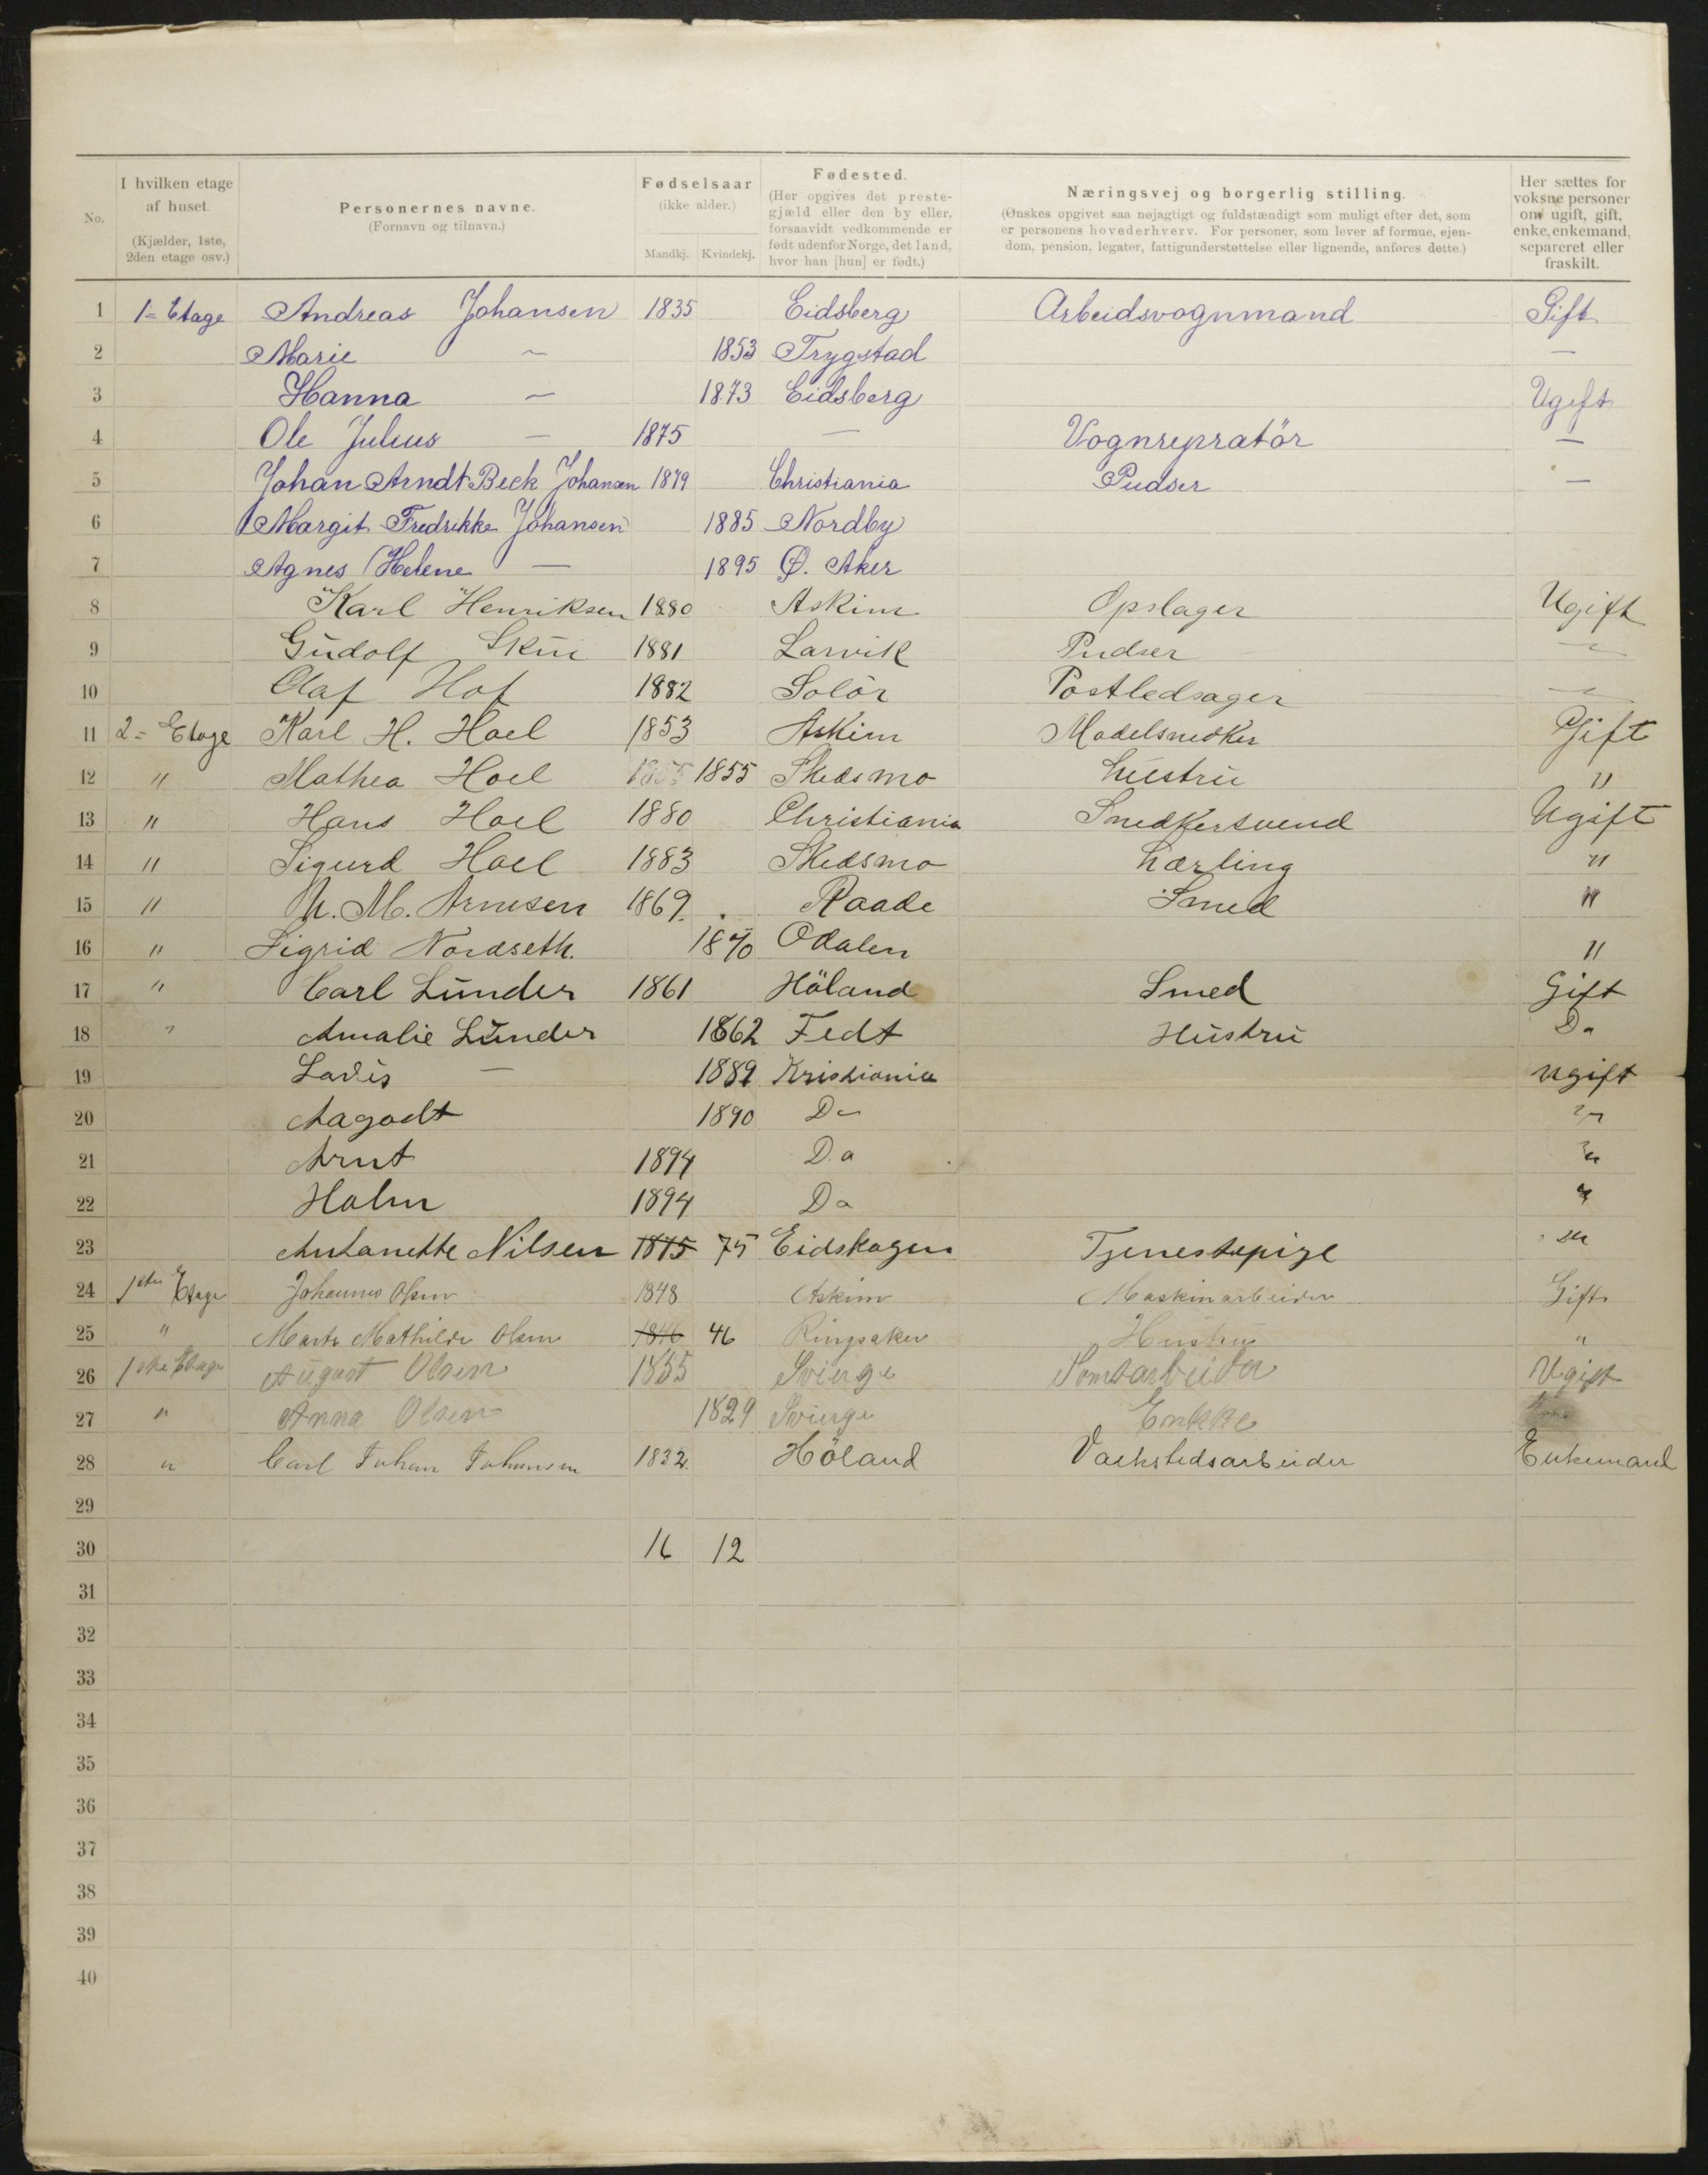 No.
I hvilken etage af huset. (Kjælder, 1ste, 2den etage osv.)
Personernes navne. (Fornavn og tilnavn.)
Fødselsaar (ikke alder.) Mandkj. Kvindekj.
Fødested. (Her opgives det prestegjæld eller den by eller, forsaavidt vedkommende er født udenfor Norge, det land, hvor han [hun] er født.)
Næringsvej og borgerlig stilling. (Ønskes opgivet saa nøjagtigt og fuldstændigt som muligt efter det, som er personens hovederhverv. For personer, som lever af formue, ejendom, pension, legater, fattigunderstøttelse eller lignende, anføres dette.)
Her sættes for voksne personer om ugift, gift, enke, enkemand, separeret eller fraskilt.
1 1= Etage Andreas Johansen 1835 Eidsberg Arbeidsvognmand Gift
2 Marie — 1853 Trygstad —
3 Hanna — 1873 Eidsberg Ugift
4 Ole Julius — 1875 — Vognrepratör —
5 Johan Arndt Beck Johansen 1879 Christiania Pudser —
6 Margit Fredrikke Johansen 1885 Nordby
7 Agnes Helene — 1895 Ø. Aker
8 Karl Henriksen 1880 Askim Opslager Ugift
9 Gudolf Skui 1881 Larvik Pudser —
10 Olaf Hof 1882 Solör Postledsager —
11 2= Etage Karl H. Hoel 1853 Askim Modelsnedker Gift
12 " Mathea Hoel 1855 1855 Skedsmo Hustru "
13 " Hans Hoel 1880 Christiania Snedkersvend Ugift
14 " Sigurd Hoel 1883 Skedsmo Lærling "
15 " M. Arnesen 1869. Raade Smed "
16 " Sigrid Nordseth. 1870 Odalen "
17 " Carl Lunder 1861 Höland Smed Gift
18 " Amalie Lunder 1862 Fedt Hustru Do
19 — 1889 Kristiania ugift
20 Aagodt 1890 Do "
21 Arnt 1894 Do "
22 Holm 1894 Do "
23 Antanette Nilsen 1875 75 Eidskogen Tjenestepige "
24 1ste Etage Johannes Olsen 1848 Askim Maskinarbeider Gift
25 " Marte Mathilde Olsen 1846 46 Ringsaker Hustru "
26 1ste Etage August Olsen 1855 Sverge Ugift
27 " Anna Olsen 1829 Sverge Enkke
28 " Carl Johan Johansen 1832. Höland Værkstedsarbeider Enkemand
29
30 16 12
31
32
33
34
35
36
37
38
39
40